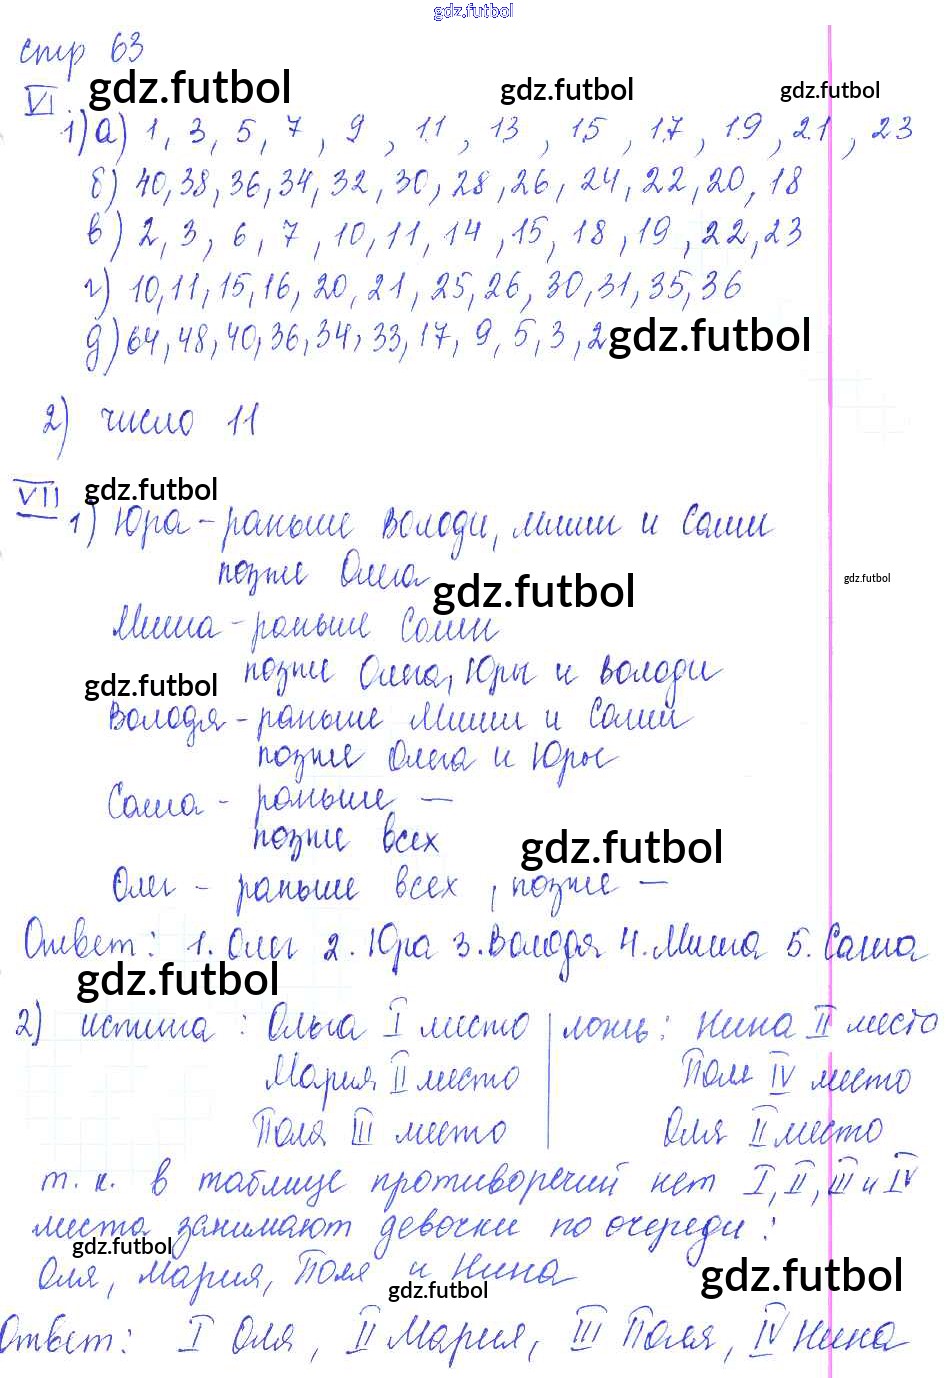 gdz.futbol
стр 63
gdz.futbol gdz.futbol gdz.futbol
VI
1) а) 1, 3, 5, 7, 9, 11, 13, 15, 17, 19, 21, 23
б) 40, 38, 36, 34, 32, 30, 28, 26, 24, 22, 20, 18
в) 2, 3, 6, 7, 10, 11, 14, 15, 18, 19, 22, 23
г) 10, 11, 15, 16, 20, 21, 25, 26, 30, 31, 35, 36
д) 64, 48, 40, 36, 34, 33, 17, 9, 5, 3, 2
gdz.futbol
2) число 11
VII gdz.futbol
1) Юра - раньше Володи, Миши и Саши
позже Олега
gdz.futbol gdz.futbol
Миша - раньше Саши
позже Олега, Юры и Володи
gdz.futbol
Володя - раньше Миши и Саши
позже Олега и Юры
Саша - раньше —
позже всех
gdz.futbol
Олег - раньше всех, позже —
Ответ: 1. Олег 2. Юра 3. Володя 4. Миша 5. Саша
gdz.futbol
2) истина: Ольга I место | ложь: Нина II место
Мария II место Поля IV место
Поля III место Оля II место
т. к. в таблице противоречий нет I, II, III и IV
места занимают девочки по очереди:
gdz.futbol
Оля, Мария, Поля и Нина
gdz.futbol gdz.futbol
Ответ: I Оля, II Мария, III Поля, IV Нина